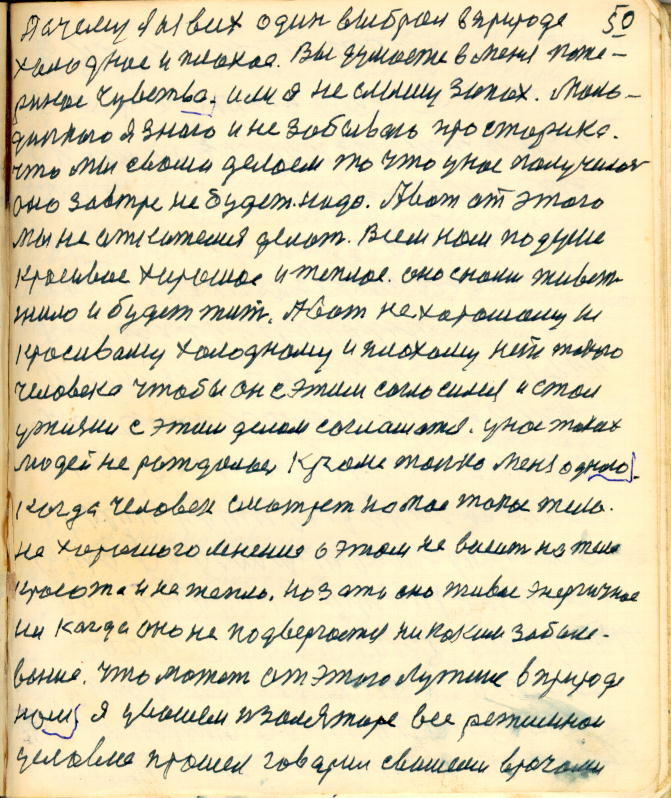 50
Почему я из вих один выброл в природе
холодное и плохое. Вы думаете в меня поте-
ряное чувства, или я не слышу запах. Моло-
динького я знаю и не забываю про старика.
что мы своим делаем то что унас получилось
оно завтре не будет. надо. А вот от этого
мы не откожемся делат. Всем ном подуше
красивое харошое и теплое. оно сноми живет
жило и будет тит. А вот не харошому и
красивому холодному и плохому нети такого
человека чтобы он с этим согласился и стол
ужизни с этим делом соглашатся. унас таких
людей не рождалося Кроме толко меня одного.
Когда человек смотрет но мое токое тело.
не харошого мнения о этом не висит на теле
красота и не тепло. но зато оно живое энергичное
ни когда оно не подвергается ни каким заболе-
вание. что можот от этого лутше в природе
ном, я увашем изоляторе все режимное
условие прошел говарил свашеми врачоми